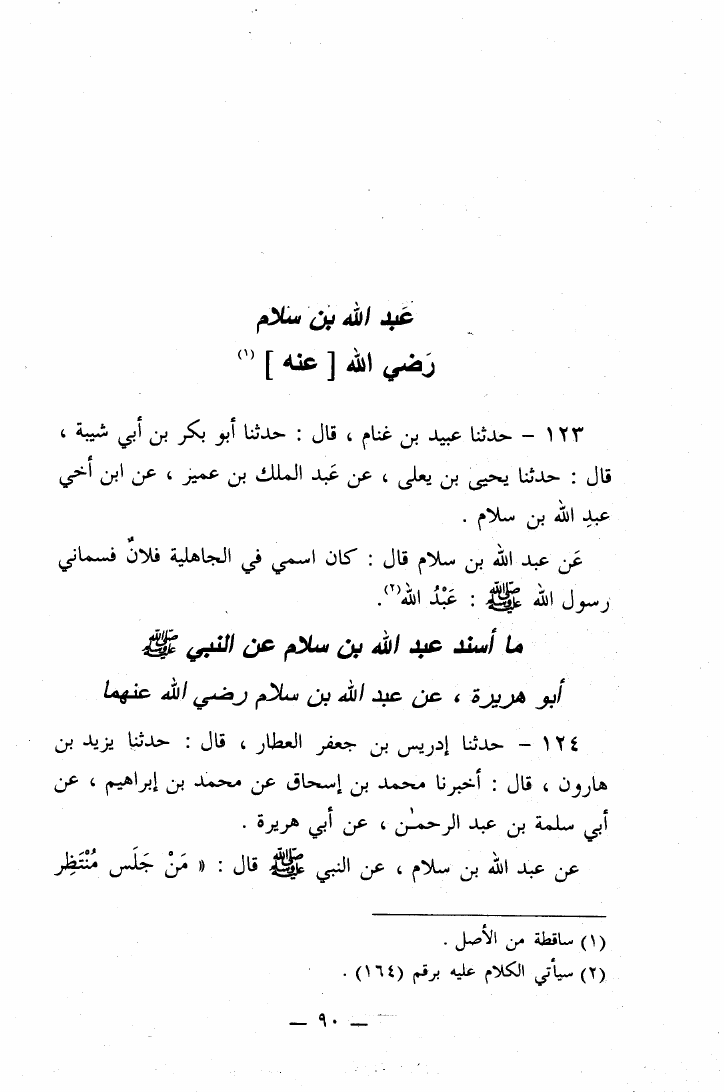 عَبد الله بن سلام
رَضي الله [ عنه ] (١)
١٢٣ – حدثنا عبيد بن غنام ، قال : حدثنا أبو بكر بن أبي شيبة ،
قال : حدثنا يحيى بن يعلى ، عن عَبد الملك بن عمير ، عن ابن أخي
عبدِ الله بن سلام .
عَن عبد الله بن سلام قال : كان اسمي في الجاهلية فلانٌ فسماني
رسول الله ﷺ : عَبْدُ الله(٢).
ما أسند عبد الله بن سلام عن النبي ﷺ
أبو هريرة ، عن عبد الله بن سلام رضي الله عنهما
١٢٤ – حدثنا إدريس بن جعفر العطار ، قال : حدثنا يزيد بن
هارون ، قال : أخبرنا محمد بن إسحاق عن محمد بن إبراهيم ، عن
أبي سلمة بن عبد الرحمٰن ، عن أبي هريرة .
عن عبد الله بن سلام ، عن النبي ﷺ قال : « مَنْ جَلَس مُنْتَظِر
(١) ساقطة من الأصل .
(٢) سيأتي الكلام عليه برقم (١٦٤) .
– ٩٠ –